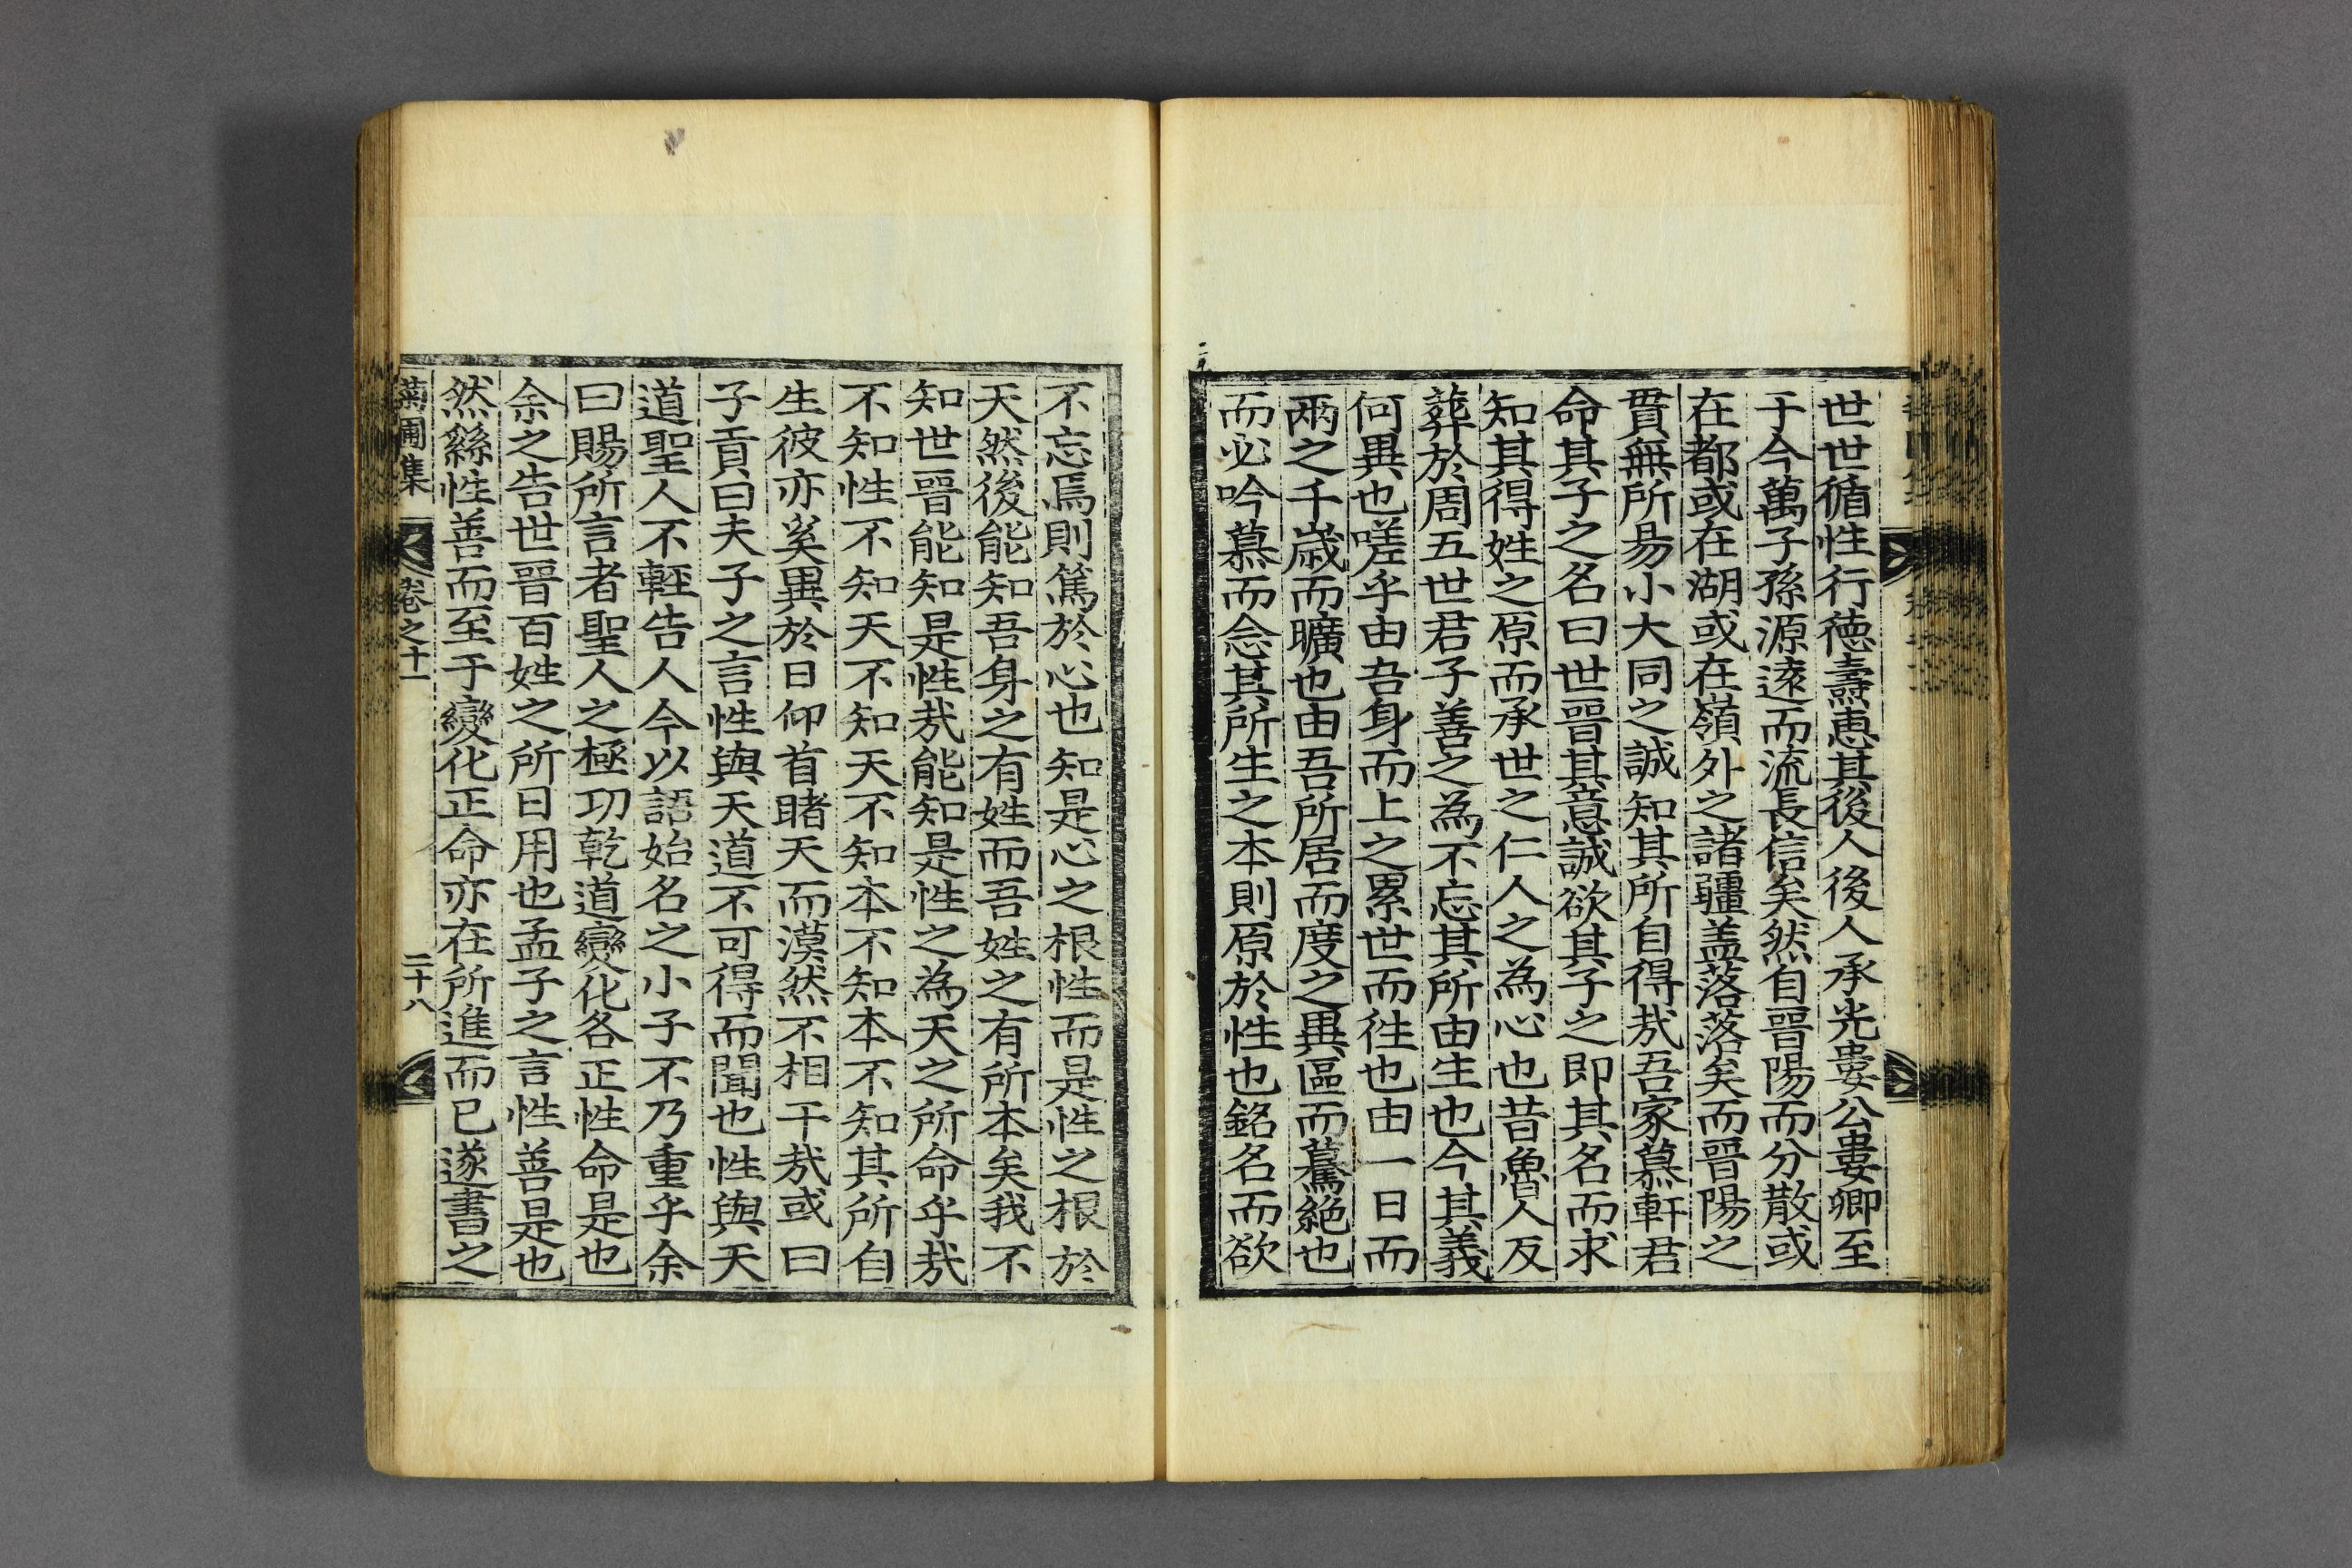 世世循性行德壽惠其後人後人承光婁公婁卿至
于今萬子孫源遠而流長信矣然自晉陽而分散或
在都或在湖或在嶺外之諸疆盖落落矣而晉陽之
貫無所易小大同之誠知其所自得㢤吾家慕軒君
命其子之名曰世晉其意誠欲其子之即其名而求
知其得姓之原而承世之仁人之為心也昔魯人反
葬於周五世君子善之為不忘其所由生也今其義
何異也嗟乎由吾身而上之累世而徃也由一日而
兩之千歲而曠也由吾所居而度之異區而驀絕也
而必吟慕而念其所生之本則原於性也銘名而欲
不忘焉則篤於心也知是心之根性而是性之根於
天然後能知吾身之有姓而吾姓之有所本矣我不
知世晉能知是性㢤能知是性之為天之所命乎㢤
不知性不知天不知天不知本不知本不知其所自
生彼亦奚異於日仰首睹天而漠然不相干㢤或曰
子貢曰夫子之言性與天道不可得而聞也性與天
道聖人不輕告人今以語始名之小子不乃重乎余
曰賜所言者聖人之極功乾道變化各正性命是也
余之告世晉百姓之所日用也孟子之言性善是也
然繇性善而至于變化正命亦在所進而已遂書之
菊圃集
卷之十一
二十八